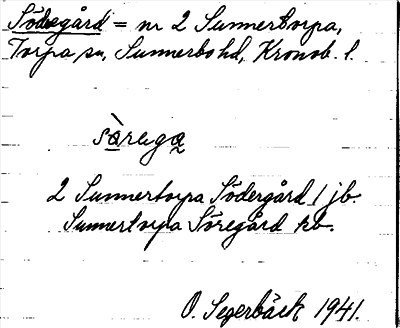 Södregård = nr 2 Sunnertorpa,
Torpa sn, Sunnerbo hd, Kronob. l.
2 Sunnertorpa Södergård / jb.
Sunnertorpa Söregård kb.
O. Segerbäck 1941.